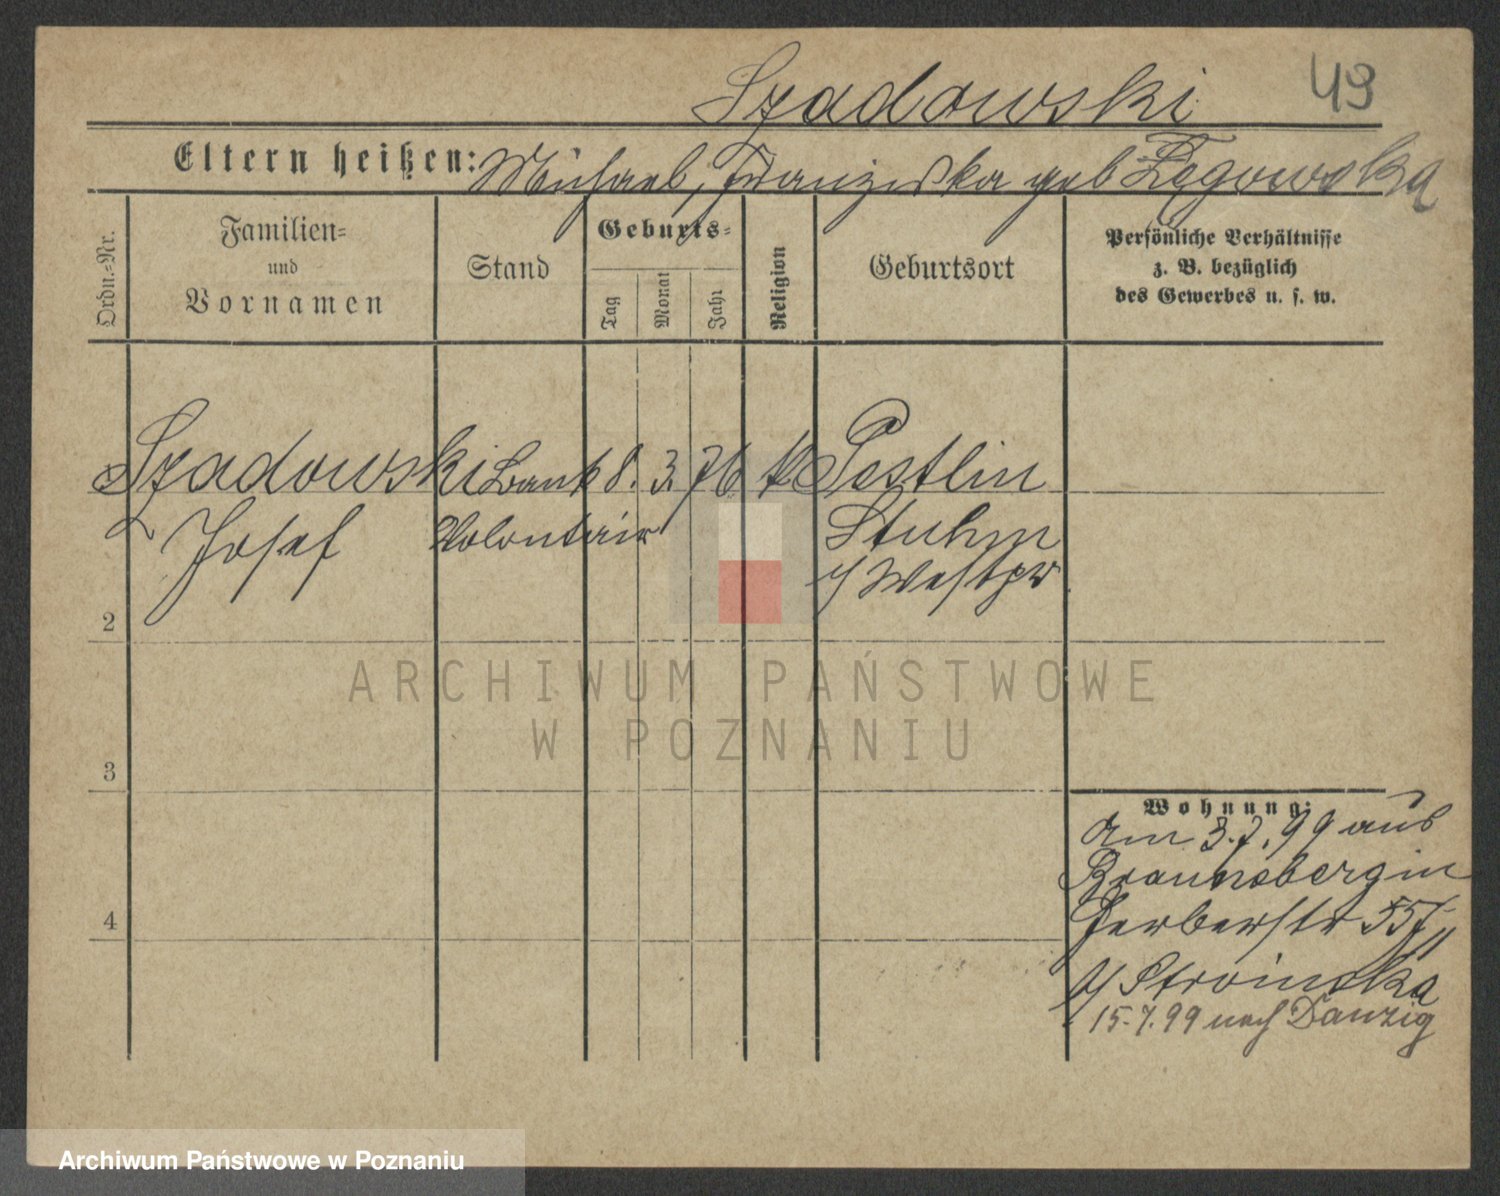 Szadowski 49
Eltern heißen: Michael, Franziska geb Łęgowska
Ordn.=Nr.
Familien=
und
Vornamen
Stand
Geburts=
Tag
Monat
Jahr
Religion
Geburtsort
Persönliche Verhältnisse
z. B. bezüglich
des Gewerbes u. s. w.
Szadowski Bank 8. 3. 76 k Pestlin
Josef Volontair Stuhm
Westpr
2
3
4
Wohnung:
am 3.7.99 aus
Braunsberg in
Gerberstr 55
b/ Stroinska
15.7.99 nach Danzig
ARCHIWUM PAŃSTWOWE
W POZNANIU
Archiwum Państwowe w Poznaniu